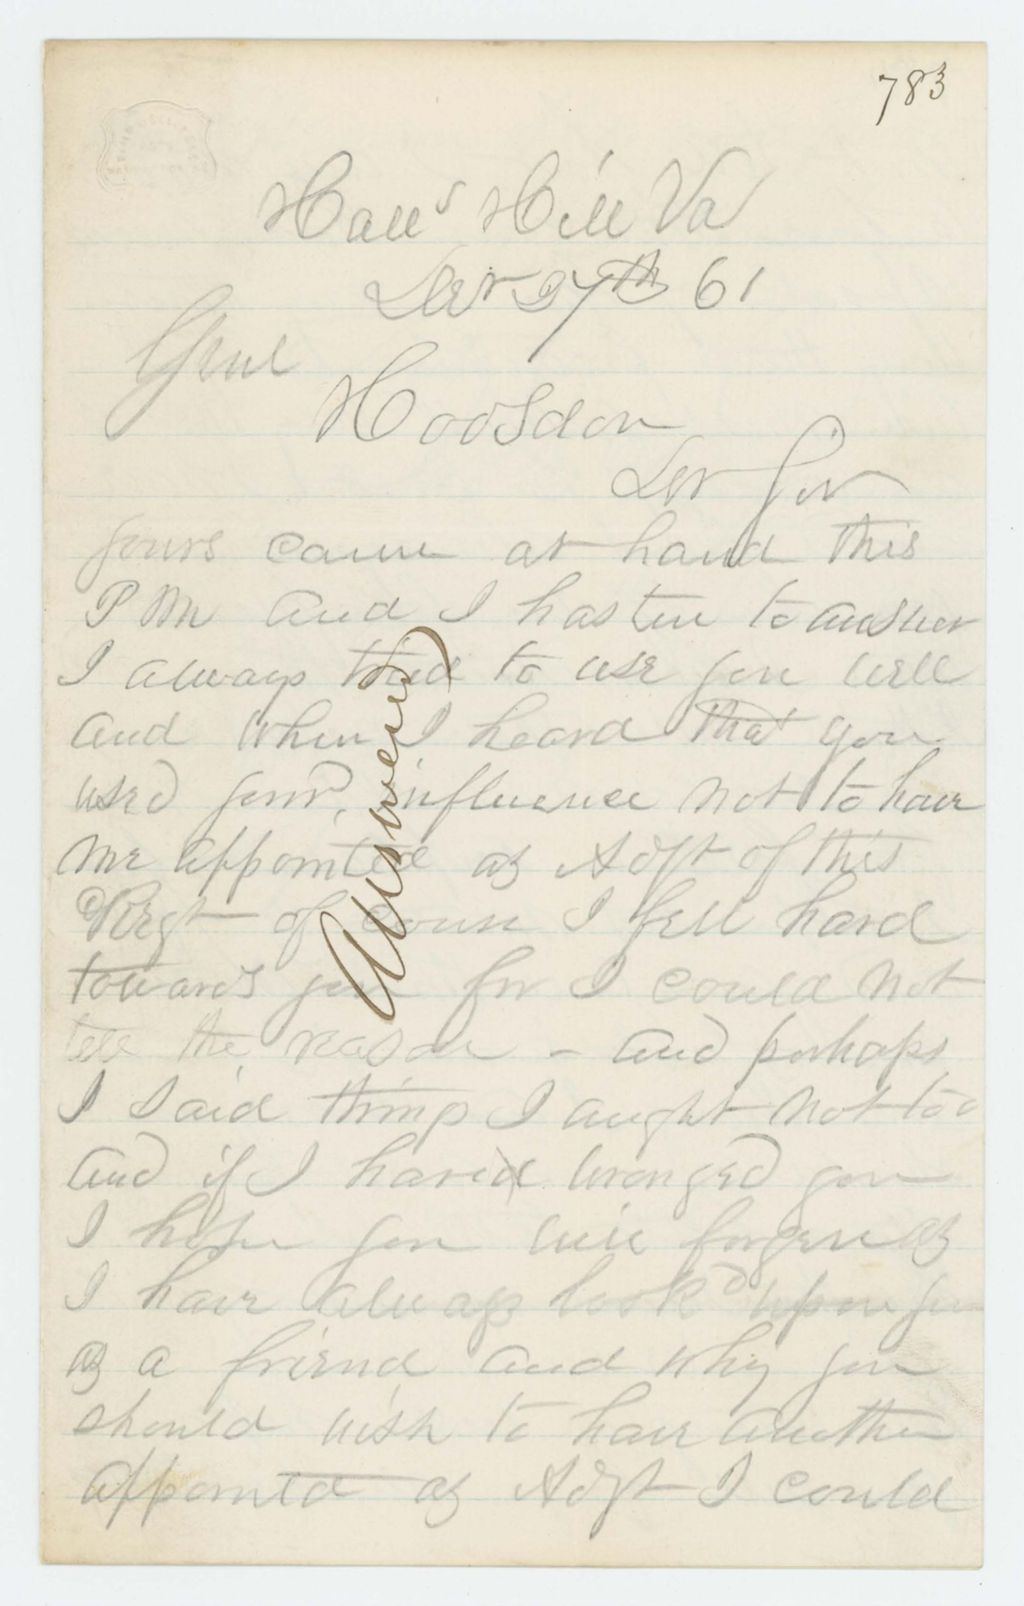 783
Hall's Hill Va
Dec 27th 61
Genl
Hodsdon
Der Sir
yours came at hand this
P M and I hasten to answer
I always tried to use you well
and when I heard that you
used your, influence not to have
me appointed as Adjt of this
Regt of cours I fell hard
towards you for I could not
tell the reason - and perhaps
I said things I aught not too
and if I have wronged you
I hope you will forgive as
I have always look'd upon you
as a friend and why you
should wish to have another
appointed as Adjt I could
Answered